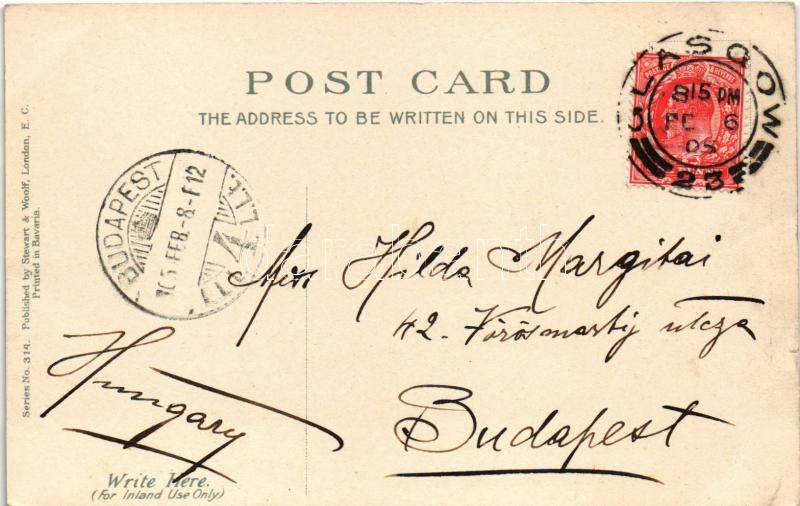 POST CARD
THE ADDRESS TO BE WRITTEN ON THIS SIDE.
GLASGOW
8 15 PM
FE 6
05
23
BUDAPEST
FEB-8
4
Miss Hilda Margitai
42. Vörösmarty utcza
Budapest
Hungary
Write Here.
(For Inland Use Only)
Series No. 314. Published by Stewart & Woolf, London, E. C.
Printed in Bavaria.